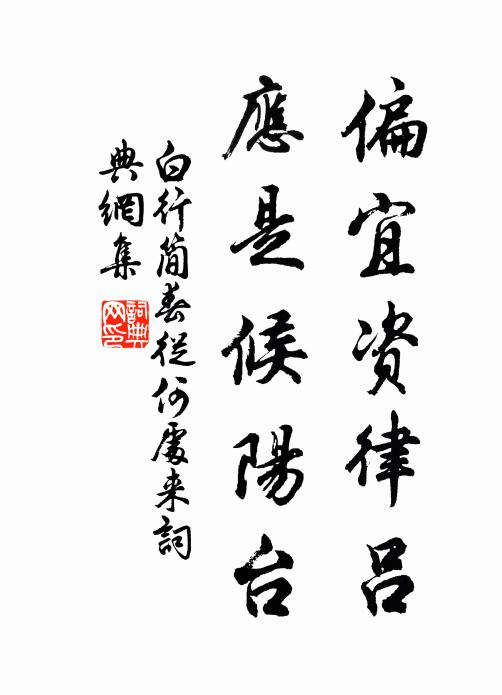 偏宜資律呂
應是候陽台
白行简春從何處来詞
典網集
詞典
网印